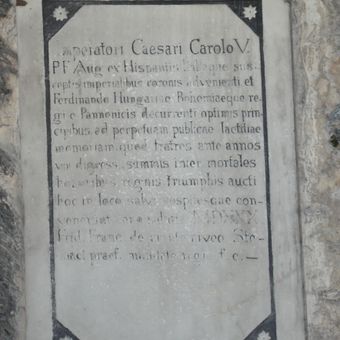 Imperatori Caesari Carolo V.
P F Aug ex Hispaniis Italiaque sus
ceptis imperialibus coronis advenienti et
Ferdinando Hungariae Bohemiaeque re
gi e Pannoniis decurrenti optimis prin
cipibus ad perpetuam publicae laetitiae
memoriam quod fratres ante annos
VIII digressi summis inter mortales
honoribus regniis triumphis aucti
hoc in loco salvi sospitesque con
MDXXX
Frid Franc de
praef f. c.